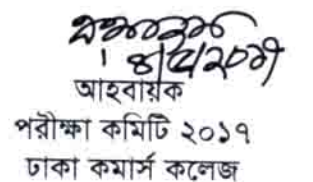 ৪/৫/২০১৭
আহবায়ক
পরীক্ষা কমিটি ২০১৭
ঢাকা কমার্স কলেজ